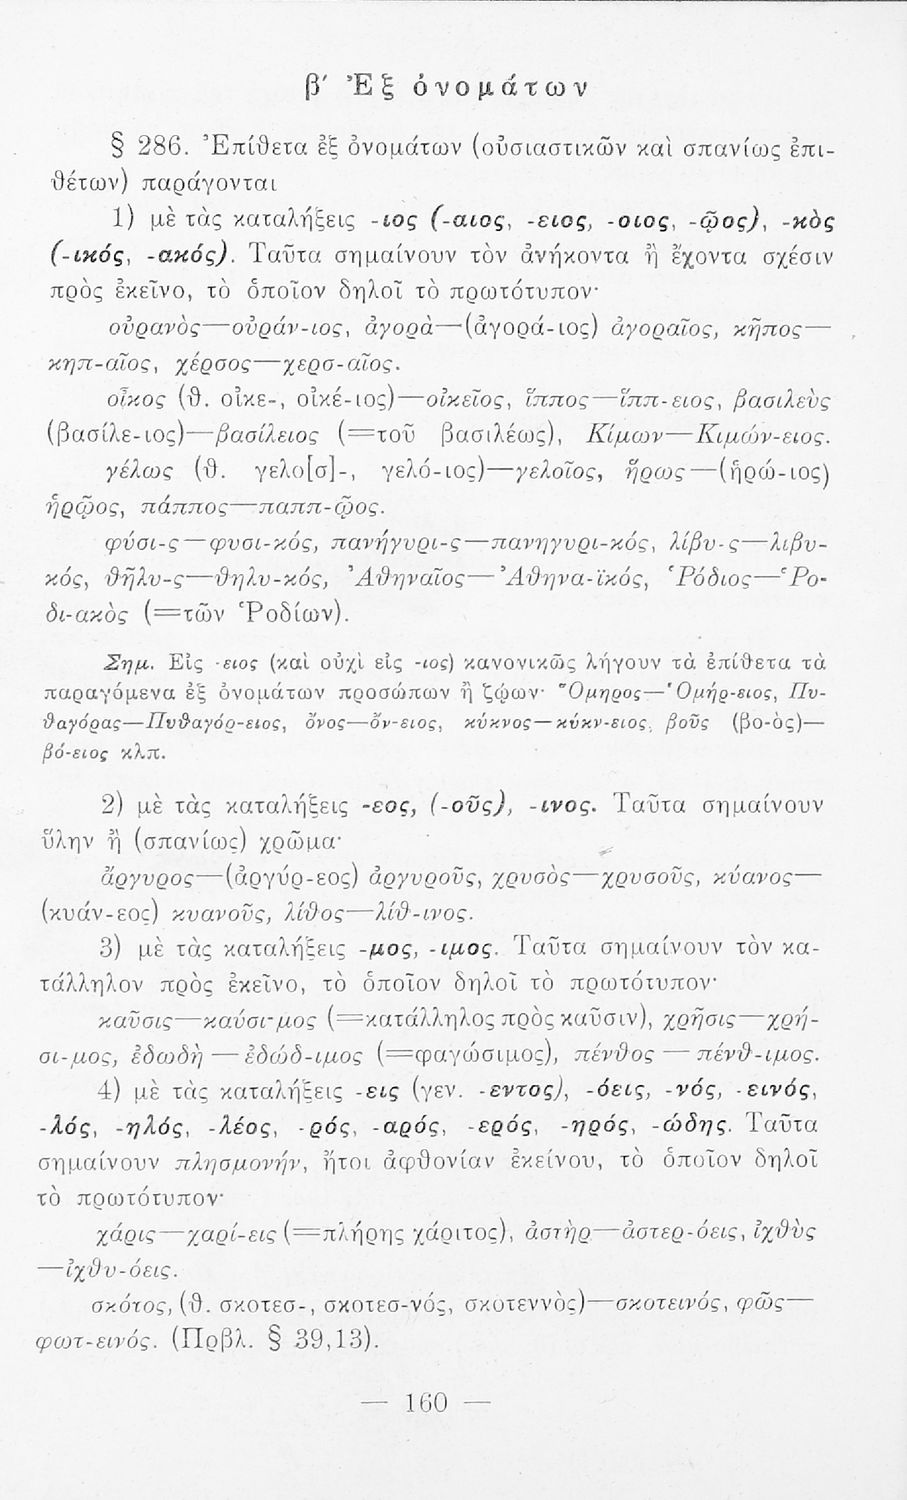 β′ Ἐξ ὀνομάτων
§ 286. Ἐπίθετα ἐξ ὀνομάτων (οὐσιαστικῶν καὶ σπανίως ἐπι-
θέτων) παράγονται
1) μὲ τὰς καταλήξεις -ιος (-αιος, -ειος, -οιος, -ῳος), -κὸς
(-ικός, -ακός). Ταῦτα σημαίνουν τὸν ἀνήκοντα ἢ ἔχοντα σχέσιν
πρὸς ἐκεῖνο, τὸ ὁποῖον δηλοῖ τὸ πρωτότυπον·
οὐρανὸς—οὐράν-ιος, ἀγορὰ—(ἀγορά-ιος) ἀγοραῖος, κῆπος—
κηπ-αῖος, χέρσος—χερσ-αῖος.
οἶκος (θ. οἰκε-, οἰκέ-ιος)—οἰκεῖος, ἵππος—ἵππ-ειος, βασιλεὺς
(βασίλε-ιος)—βασίλειος (=τοῦ βασιλέως), Κίμων—Κιμών-ειος.
γέλως (θ. γελο[σ]-, γελό-ιος)—γελοῖος, ἥρως—(ἡρώ-ιος)
ἡρῷος, πάππος—παππ-ῷος.
φύσι-ς—φυσι-κός, πανήγυρι-ς—πανηγυρι-κός, λίβυ-ς—λιβυ-
κός, θῆλυ-ς—θηλυ-κός, Ἀθηναῖος—Ἀθηνα-ϊκός, Ῥόδιος—Ῥο-
δι-ακὸς (=τῶν Ῥοδίων).
Σημ. Εἰς -ειος (καὶ οὐχὶ εἰς -ιος) κανονικῶς λήγουν τὰ ἐπίθετα τὰ
παραγόμενα ἐξ ὀνομάτων προσώπων ἢ ζῴων· Ὅμηρος—Ὁμήρ-ειος, Πυ-
θαγόρας—Πυθαγόρ-ειος, ὄνος—ὄν-ειος, κύκνος—κύκν-ειος, βοῦς (βο-ὸς)—
βό-ειος κλπ.
2) μὲ τὰς καταλήξεις -εος, (-οῦς), -ινος. Ταῦτα σημαίνουν
ὕλην ἢ (σπανίως) χρῶμα·
ἄργυρος—(ἀργύρ-εος) ἀργυροῦς, χρυσὸς—χρυσοῦς, κύανος—
(κυάν-εος) κυανοῦς, λίθος—λίθ-ινος.
3) μὲ τὰς καταλήξεις -μος, -ιμος. Ταῦτα σημαίνουν τὸν κα-
τάλληλον πρὸς ἐκεῖνο, τὸ ὁποῖον δηλοῖ τὸ πρωτότυπον·
καῦσις—καύσι-μος (=κατάλληλος πρὸς καῦσιν), χρῆσις—χρή-
σι-μος, ἐδωδὴ — ἐδώδ-ιμος (=φαγώσιμος), πένθος — πένθ-ιμος.
4) μὲ τὰς καταλήξεις -εις (γεν. -εντος), -όεις, -νός, -εινός,
-λός, -ηλός, -λέος, -ρός, -αρός, -ερός, -ηρός, -ώδης. Ταῦτα
σημαίνουν πλησμονήν, ἤτοι ἀφθονίαν ἐκείνου, τὸ ὁποῖον δηλοῖ
τὸ πρωτότυπον·
χάρις—χαρί-εις (=πλήρης χάριτος), ἀστὴρ—ἀστερ-όεις, ἰχθὺς
—ἰχθυ-όεις.
σκότος, (θ. σκοτεσ-, σκοτεσ-νός, σκοτεννὸς)—σκοτεινός, φῶς—
φωτ-εινός. (Πρβλ. § 39,13).
— 160 —